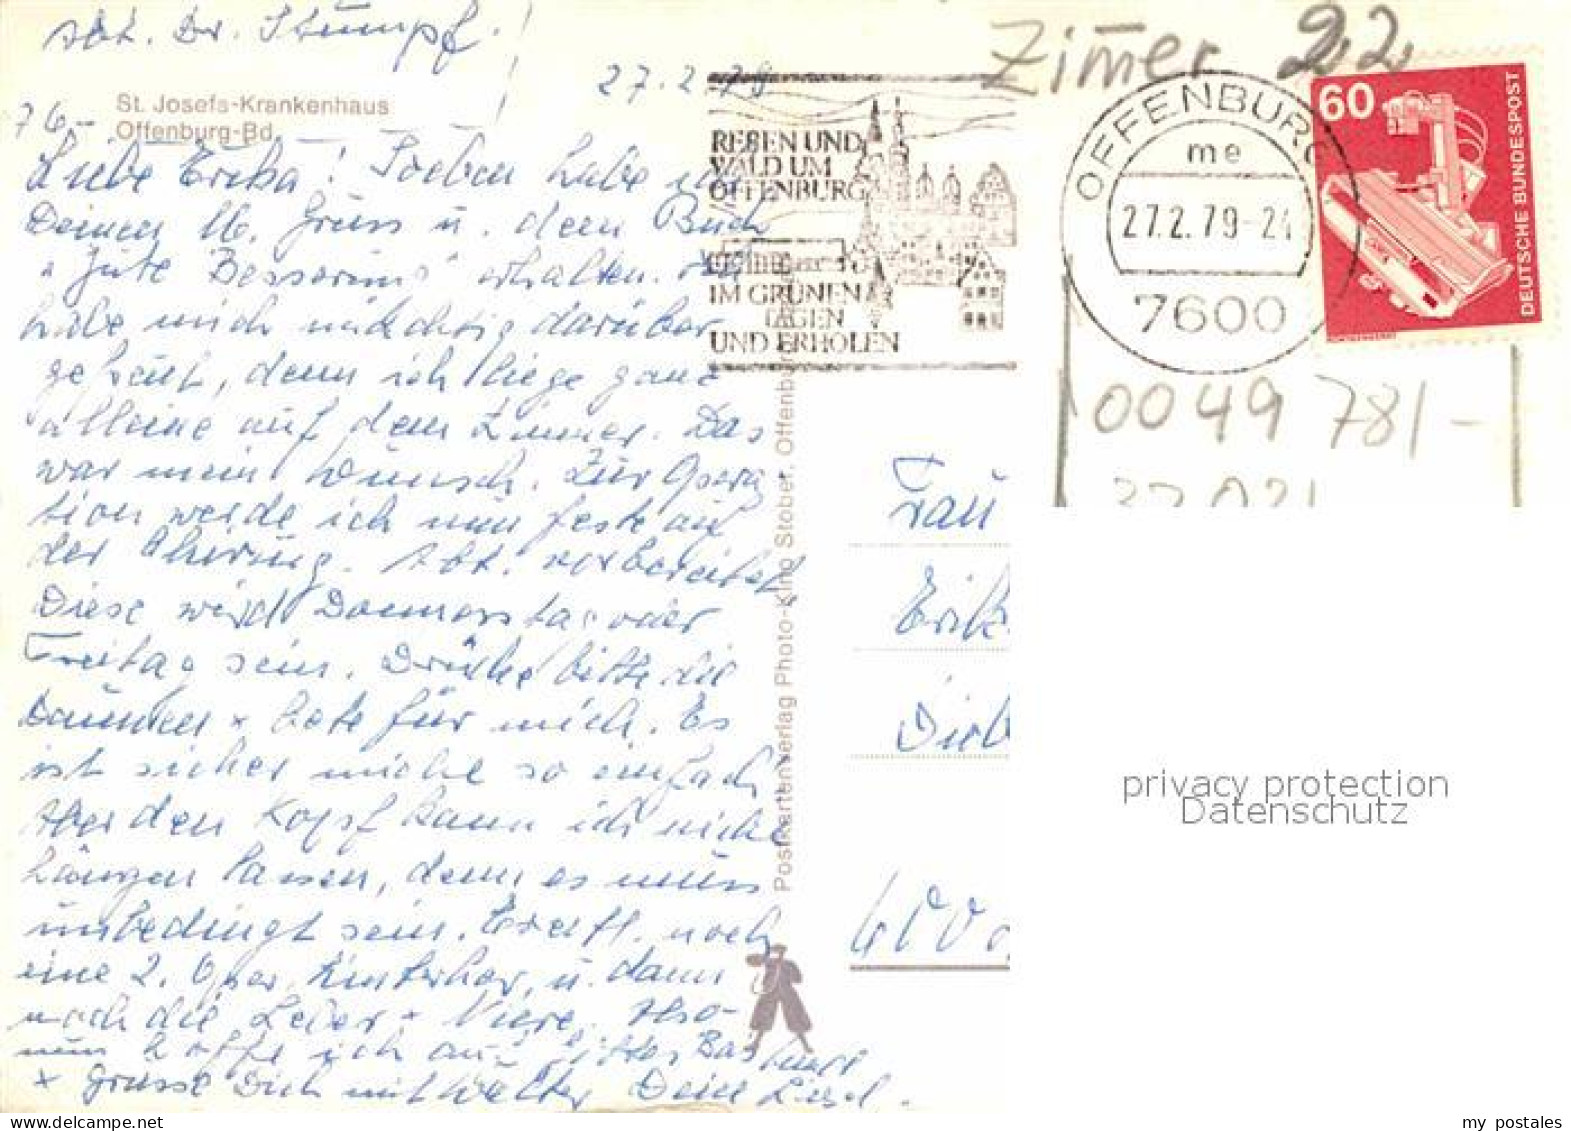 Abt. Dr. Stumpf.
27.2.79
Zimmer 22
76-
St. Josefs-Krankenhaus
Offenburg-Bd.
Liebe Erika! Soeben habe ich
Deinen lb. Gruss u. dem Buch
"Gute Besserung" erhalten. Ich
habe mich mächtig darüber
gefreut, denn ich liege ganz
alleine auf dem Zimmer. Das
war mein Wunsch. Zur Opera
tion werde ich nun feste auf
der Chirurg. Abt. vorbereitet.
Diese wird Donnerstag oder
Freitag sein. Drücke bitte die
Daumen + bete für mich. Es
ist sicher nicht so einfach
Aber den Kopf kann ich nicht
hängen lassen, denn es muss
unbedingt sein. Eventl. noch
eine 2. Oper. hinterher, u. dann
noch die Leber + Niere. Also
nun hoffe ich auf Gottes
+ grüsse Dich mit Walter Deine Liesel.
REBEN UND
WALD UM
OFFENBURG
IM GRÜNEN
TAGEN
UND ERHOLEN
OFFENBURG
me
27.2.79-24
7600
60
DEUTSCHE BUNDESPOST
0049 781/-
Postkartenverlag Photo-King Stober, Offenburg
Frau
Erik
privacy protection
Datenschutz
my postales